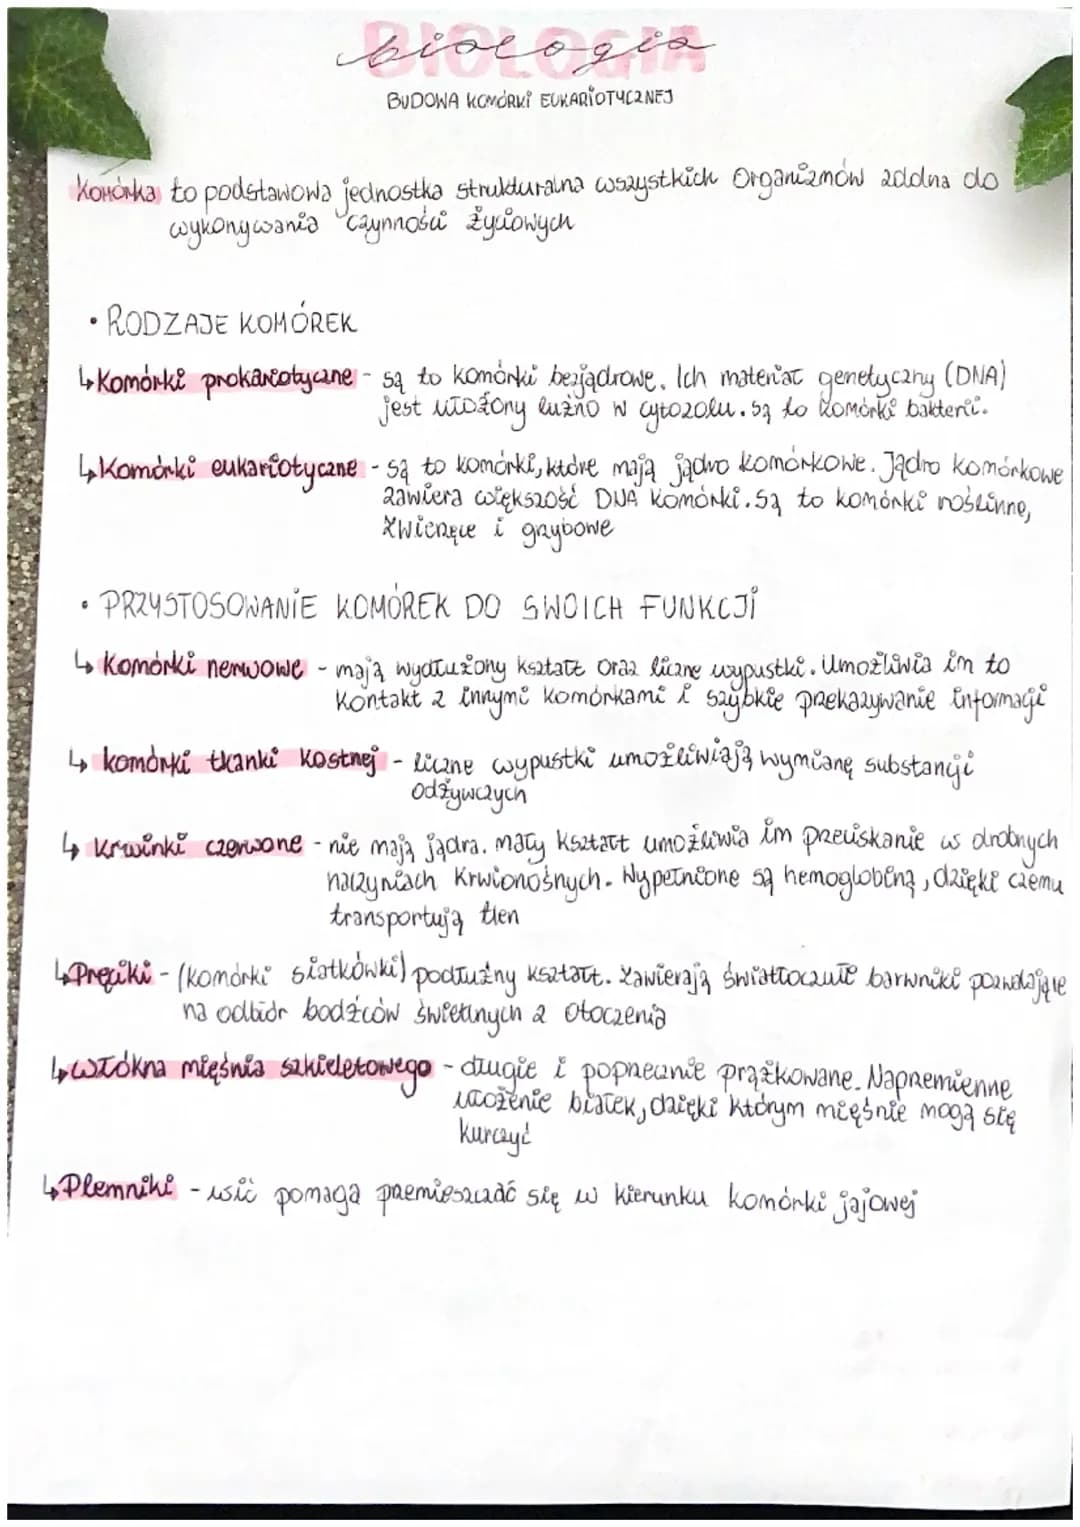 BIOLOGIA
biologia
BUDOWA KOMÓRKI EUKARIOTYCZNEJ
Komórka to podstawowa jednostka strukturalna wszystkich organizmów zdolna do
wykonywania czynności życiowych
• RODZAJE KOMÓREK
↳ Komórki prokariotyczne - są to komórki bezjądrowe. Ich materiał genetyczny (DNA)
jest ułożony luźno w cytozolu. Są to komórki bakterii.
↳ Komórki eukariotyczne - są to komórki, które mają jądro komórkowe. Jądro komórkowe
zawiera większość DNA komórki. Są to komórki roślinne,
zwierzęce i grzybowe
• PRZYSTOSOWANIE KOMÓREK DO SWOICH FUNKCJI
↳ Komórki nerwowe - mają wydłużony kształt oraz liczne wypustki. Umożliwia im to
kontakt z innymi komórkami i szybkie przekazywanie informacji
↳ komórki tkanki kostnej - liczne wypustki umożliwiają wymianę substancji
odżywczych
↳ Krwinki czerwone - nie mają jądra. Mały kształt umożliwia im przeciskanie w drobnych
naczyniach krwionośnych. Wypełnione są hemoglobiną, dzięki czemu
transportują tlen
↳ Pręciki - (komórki siatkówki) podłużny kształt. Zawierają światłoczułe barwniki pozwalające
na odbiór bodźców świetlnych z otoczenia
↳ Włókna mięśnia szkieletowego - długie i poprzecznie prążkowane. Naprzemienne
ułożenie białek, dzięki którym mięśnie mogą się
kurczyć
↳ Plemniki - wić pomaga przemieszczać się w kierunku komórki jajowej